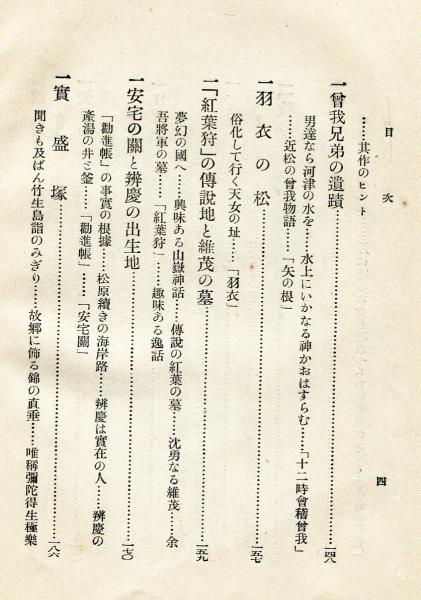 目次
四
……其作のヒント
一曾我兄弟の遺蹟……一四八
男達なら河津の水を……水上にいかなる神かおはすらむ……「十二時會稽曾我」
……近松の曾我物語……「矢の根」
一羽衣の松……一五七
俗化して行く天女の址……「羽衣」
一「紅葉狩」の傳說地と維茂の墓……一五九
夢幻の國へ……興味ある山嶽神話……傳說の紅葉の墓……沈勇なる維茂……余
吾將軍の墓……「紅葉狩」……趣味ある逸話
一安宅の關と辨慶の出生地……一七〇
「勸進帳」の事實の根據……松原續きの海岸路……辨慶は實在の人……辨慶の
產湯の井と釜……「勸進帳」……「安宅關」
一實盛塚……一八六
聞きも及ばん竹生島詣のみぎり……故鄉に飾る錦の直垂……唯稱彌陀得生極樂